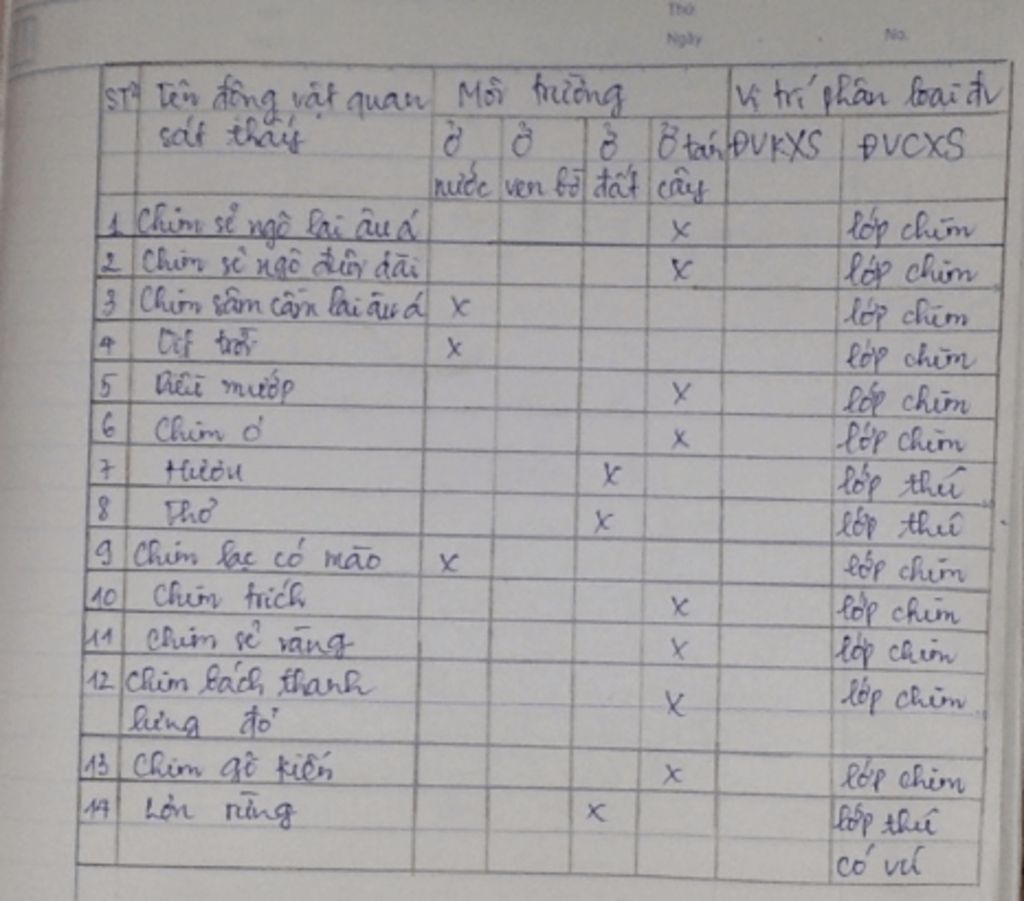 Thứ
Ngày No.
STT Tên động vật quan sát thấy Môi trường Vị trí phân loại đv
Ở nước Ở ven bờ Ở đất Ở tán cây ĐVKXS ĐVCXS
1 Chim sẻ ngô lai âu á x lớp chim
2 Chim sẻ ngô đuôi dài x lớp chim
3 Chim sâm cầm lai âu á x lớp chim
4 trời x lớp chim
5 Diều mướp x lớp chim
6 Chim ó x lớp chim
7 Hươu x lớp thú
8 Thỏ x lớp thú
9 Chim lạc có mào x lớp chim
10 Chim trích x lớp chim
11 Chim sẻ vàng x lớp chim
12 Chim bách thanh x lớp chim
lưng đỏ
13 Chim gõ kiến x lớp chim
14 Lợn rừng x lớp thú
có vú